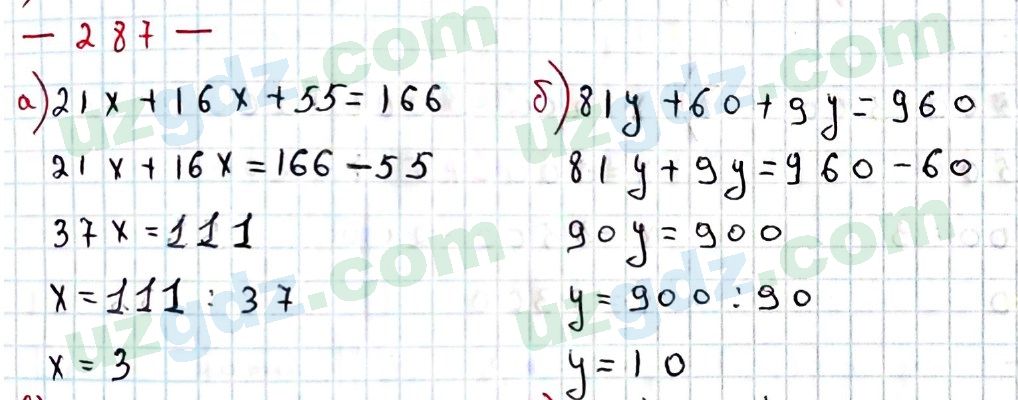 — 287 —
а) 21x + 16x + 55 = 166
21x + 16x = 166 - 55
37x = 111
x = 111 : 37
x = 3
б) 81y + 60 + 9y = 960
81y + 9y = 960 - 60
90y = 900
y = 900 : 90
y = 10
uzgdz.com
uzgdz.com
uzgdz.com
uzgdz.com